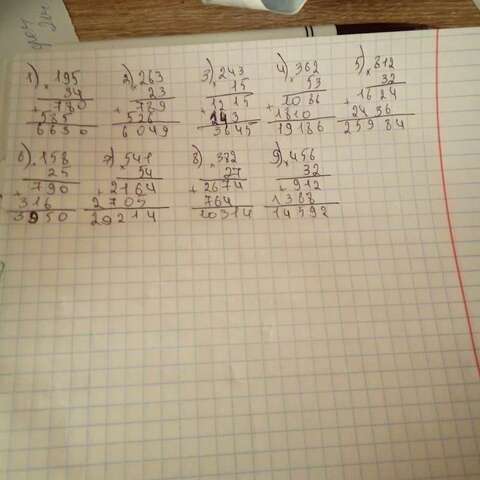 1) 195 2) 263 3) 243 4) 362 5) 812
× 34 × 23 × 15 × 53 × 32
+ 780 + 789 + 1215 + 1086 + 1624
585 526 243 1810 2436
6630 6049 3645 19186 25984
6) 158 7) 541 8) 382 9) 456
× 25 × 54 × 27 × 32
+ 790 + 2164 + 2674 + 912
316 2705 764 1368
3950 29214 10314 14592